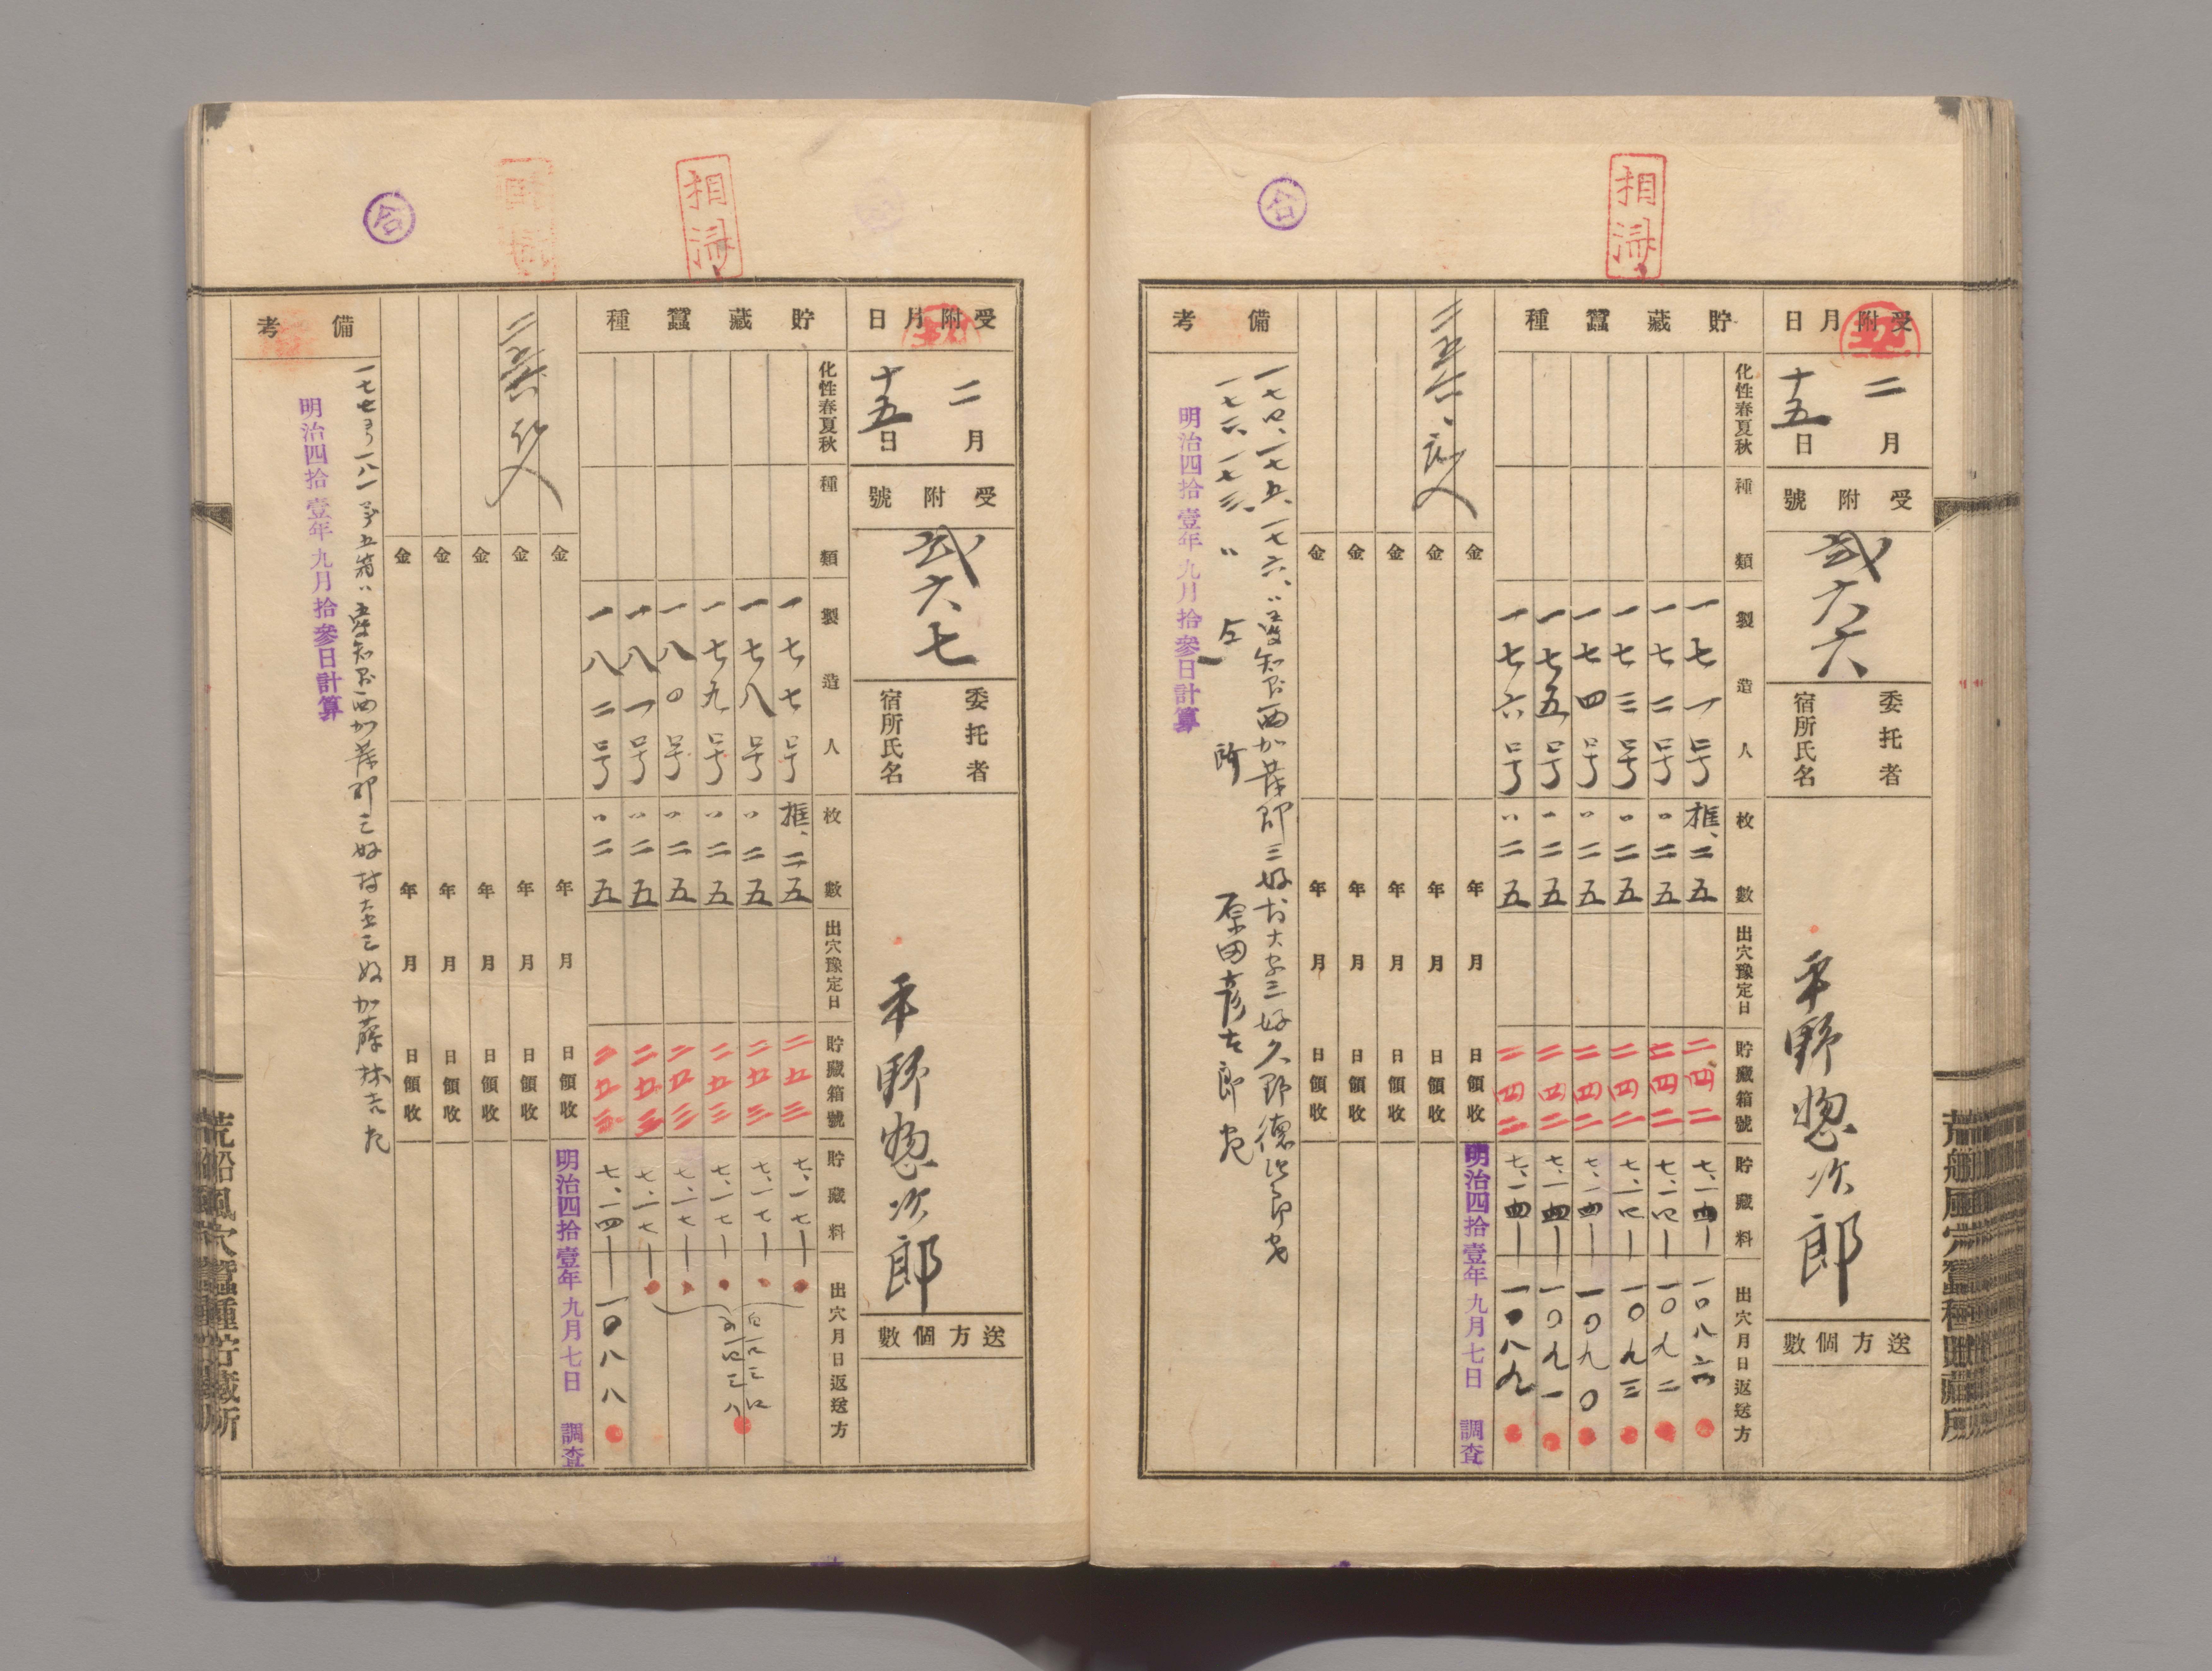 相済
合
受附月日
二月
十五日
受附號
弐六六
委托者
宿所氏名
平野惣次郎
送方個數
貯藏蠶種
化性春夏秋
種類
製造人
枚數
出穴豫定日
貯藏箱號
貯藏料
出穴月日返送方
一七一号 框、二五 二四二 七、一四―
一七二号 〃二五 二四二 七、一四― 一〇九二
一七三号 〃二五 二四二 七、一四― 一〇九三
一七四号 〃二五 二四二 七、一四― 一〇九〇
一七五号 〃二五 二四二 七、一四― 一〇九一
一七六号 〃二五 二四二 七、一四― 一〇八九
明治四拾壹年九月七日 調査
金 年 月 日領收
金 年 月 日領收
金 年 月 日領收
金 年 月 日領收
金 年 月 日領收
備考
一七四、一七五、一七六、〃愛知県西加茂郡三好村大字三好久野德次郎
原田彦太郎
明治四拾壹年九月拾參日計算
荒船風穴蠶種貯藏所
相済
合
受附月日
二月
十五日
受附號
弐六七
委托者
宿所氏名
平野惣次郎
送方個數
貯藏蠶種
化性春夏秋
種類
製造人
枚數
出穴豫定日
貯藏箱號
貯藏料
出穴月日返送方
一七七号 框、二五 二五三 七、一七―
一七八号 〃二五 二五三 七、一七―
一七九号 〃二五 二五三 七、一七―
一八〇号 〃二五 二五三 七、一七―
一八一号 〃二五 二五三 七、一七―
一八二号 〃二五 二五三 七、一四― 一〇八八
明治四拾壹年九月七日 調査
金 年 月 日領收
金 年 月 日領收
金 年 月 日領收
金 年 月 日領收
金 年 月 日領收
備考
一七七号一八一号五箱〃愛知県西加茂郡三好村大字三好加藤
明治四拾壹年九月拾參日計算
荒船風穴蠶種貯藏所